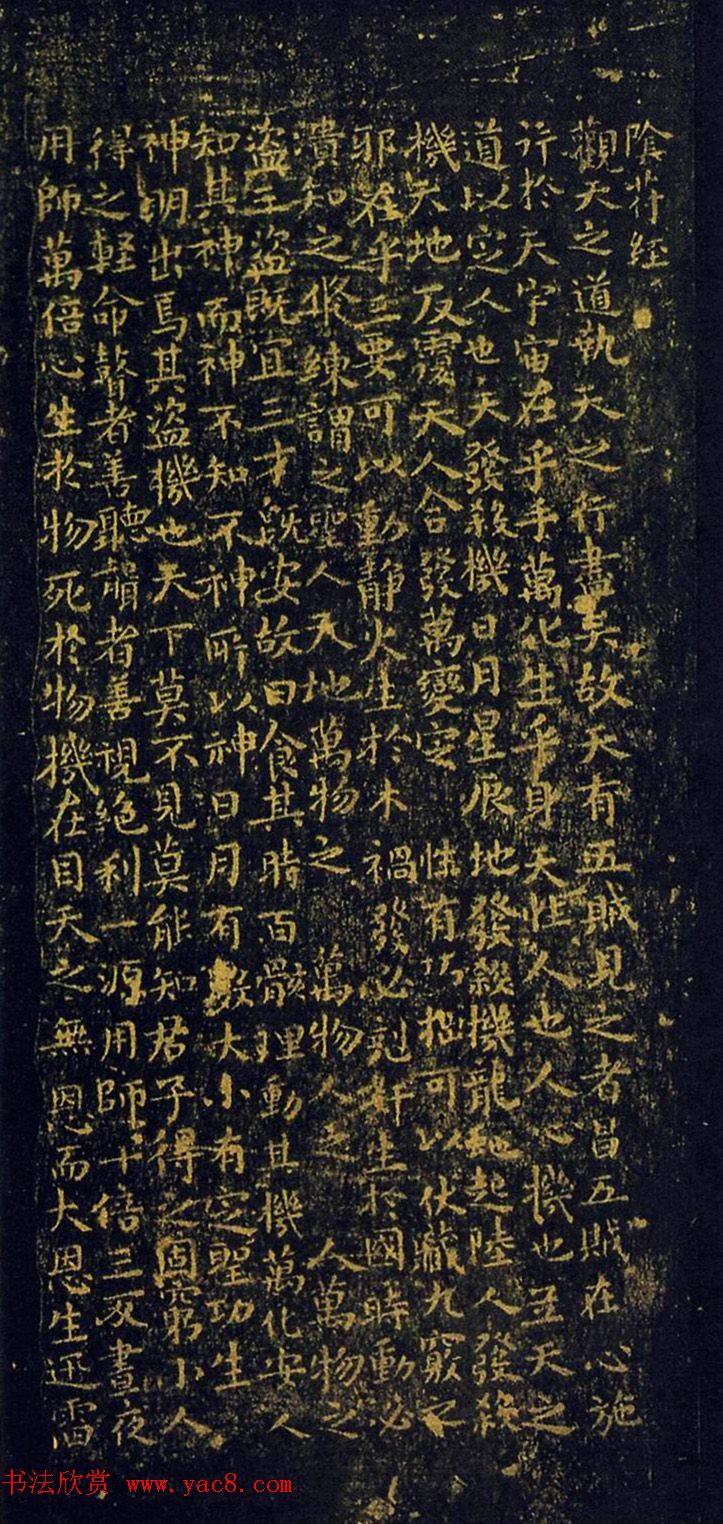 陰符經
觀天之道執天之行盡矣故天有五賊見之者昌五賊在心施
行於天宇宙在乎手萬化生乎身天性人也人心機也立天之
道以定人也天發殺機日月星辰地發殺機龍虵起陸人發殺
機天地反覆天人合發萬變定 性有巧拙可以伏藏九竅之
邪在乎三要可以動靜火生於木 禍發必剋奸生於國時動必
潰知之修練謂之聖人天地萬物之 萬物人之 人萬物之
盜三盜既宜三才既安故曰食其時百骸理動其機萬化安人
知其神而神不知不神所以神日月有數大小有定聖功生
神明出焉其盜機也天下莫不見莫能知君子得之固窮小人
得之輕命瞽者善聽聾者善視絕利一源用師十倍三反晝夜
用師萬倍心生於物死於物機在目天之無恩而大恩生迅雷
书法欣赏 www.yac8.com